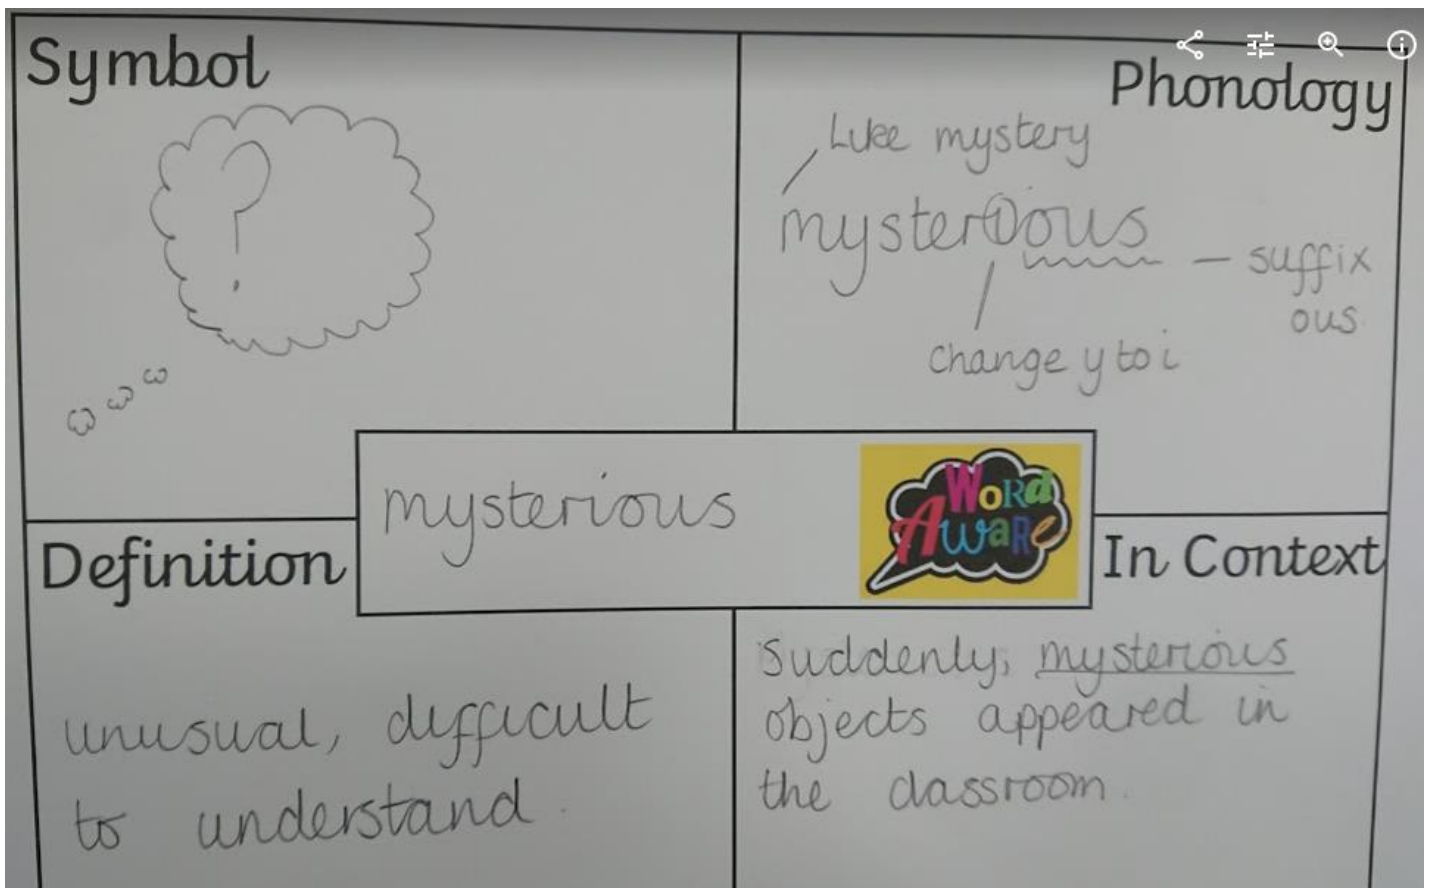 Symbol
?
Phonology
Like mystery
mysterious
suffix
ous
change y to i
mysterious
WORD
AWARE
Definition
In Context
unusual, difficult
to understand.
Suddenly, mysterious
objects appeared in
the classroom.